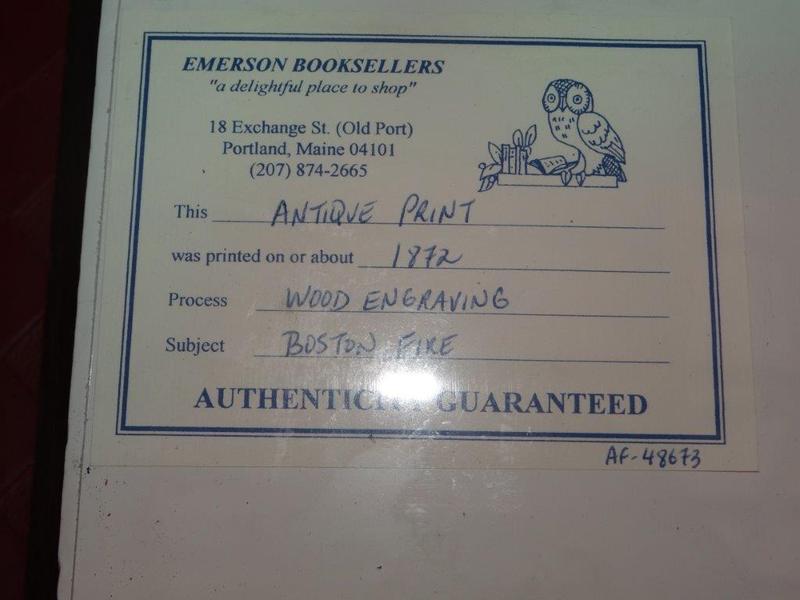 EMERSON BOOKSELLERS
"a delightful place to shop"
18 Exchange St. (Old Port)
Portland, Maine 04101
(207) 874-2665
This ANTIQUE PRINT
was printed on or about 1872
Process WOOD ENGRAVING
Subject BOSTON FIRE
AUTHENTICITY GUARANTEED
AF-48673